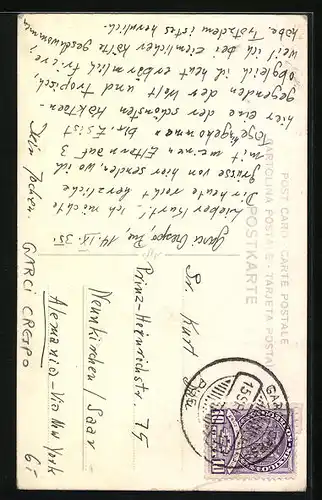 Garci Crespo, Pue, 14. IX. 35.
Lieber Kurt! Ich möchte
Dir heute recht herzliche
Grüsse von hier senden, wo ich
mit meinen Eltern auf 3
Tage hingekommen bin. Es ist
hier eine der schönsten Kakteen-
gegenden der Welt und tropisch,
obgleich ich heut erbärmlich friere,
weil ich bei ziemlicher Kälte geschwommen
habe. Trotzdem ist es herrlich.
Dein Jochen.
GARCI CRESPO
POST CARD CARTE POSTALE
CARTOLINA POSTALE - TARJETA POSTAL
POSTKARTE
Dr. Kurt
Prinz-Heinrichstr. 75
Neunkirchen/Saar
Alemania - Via New York